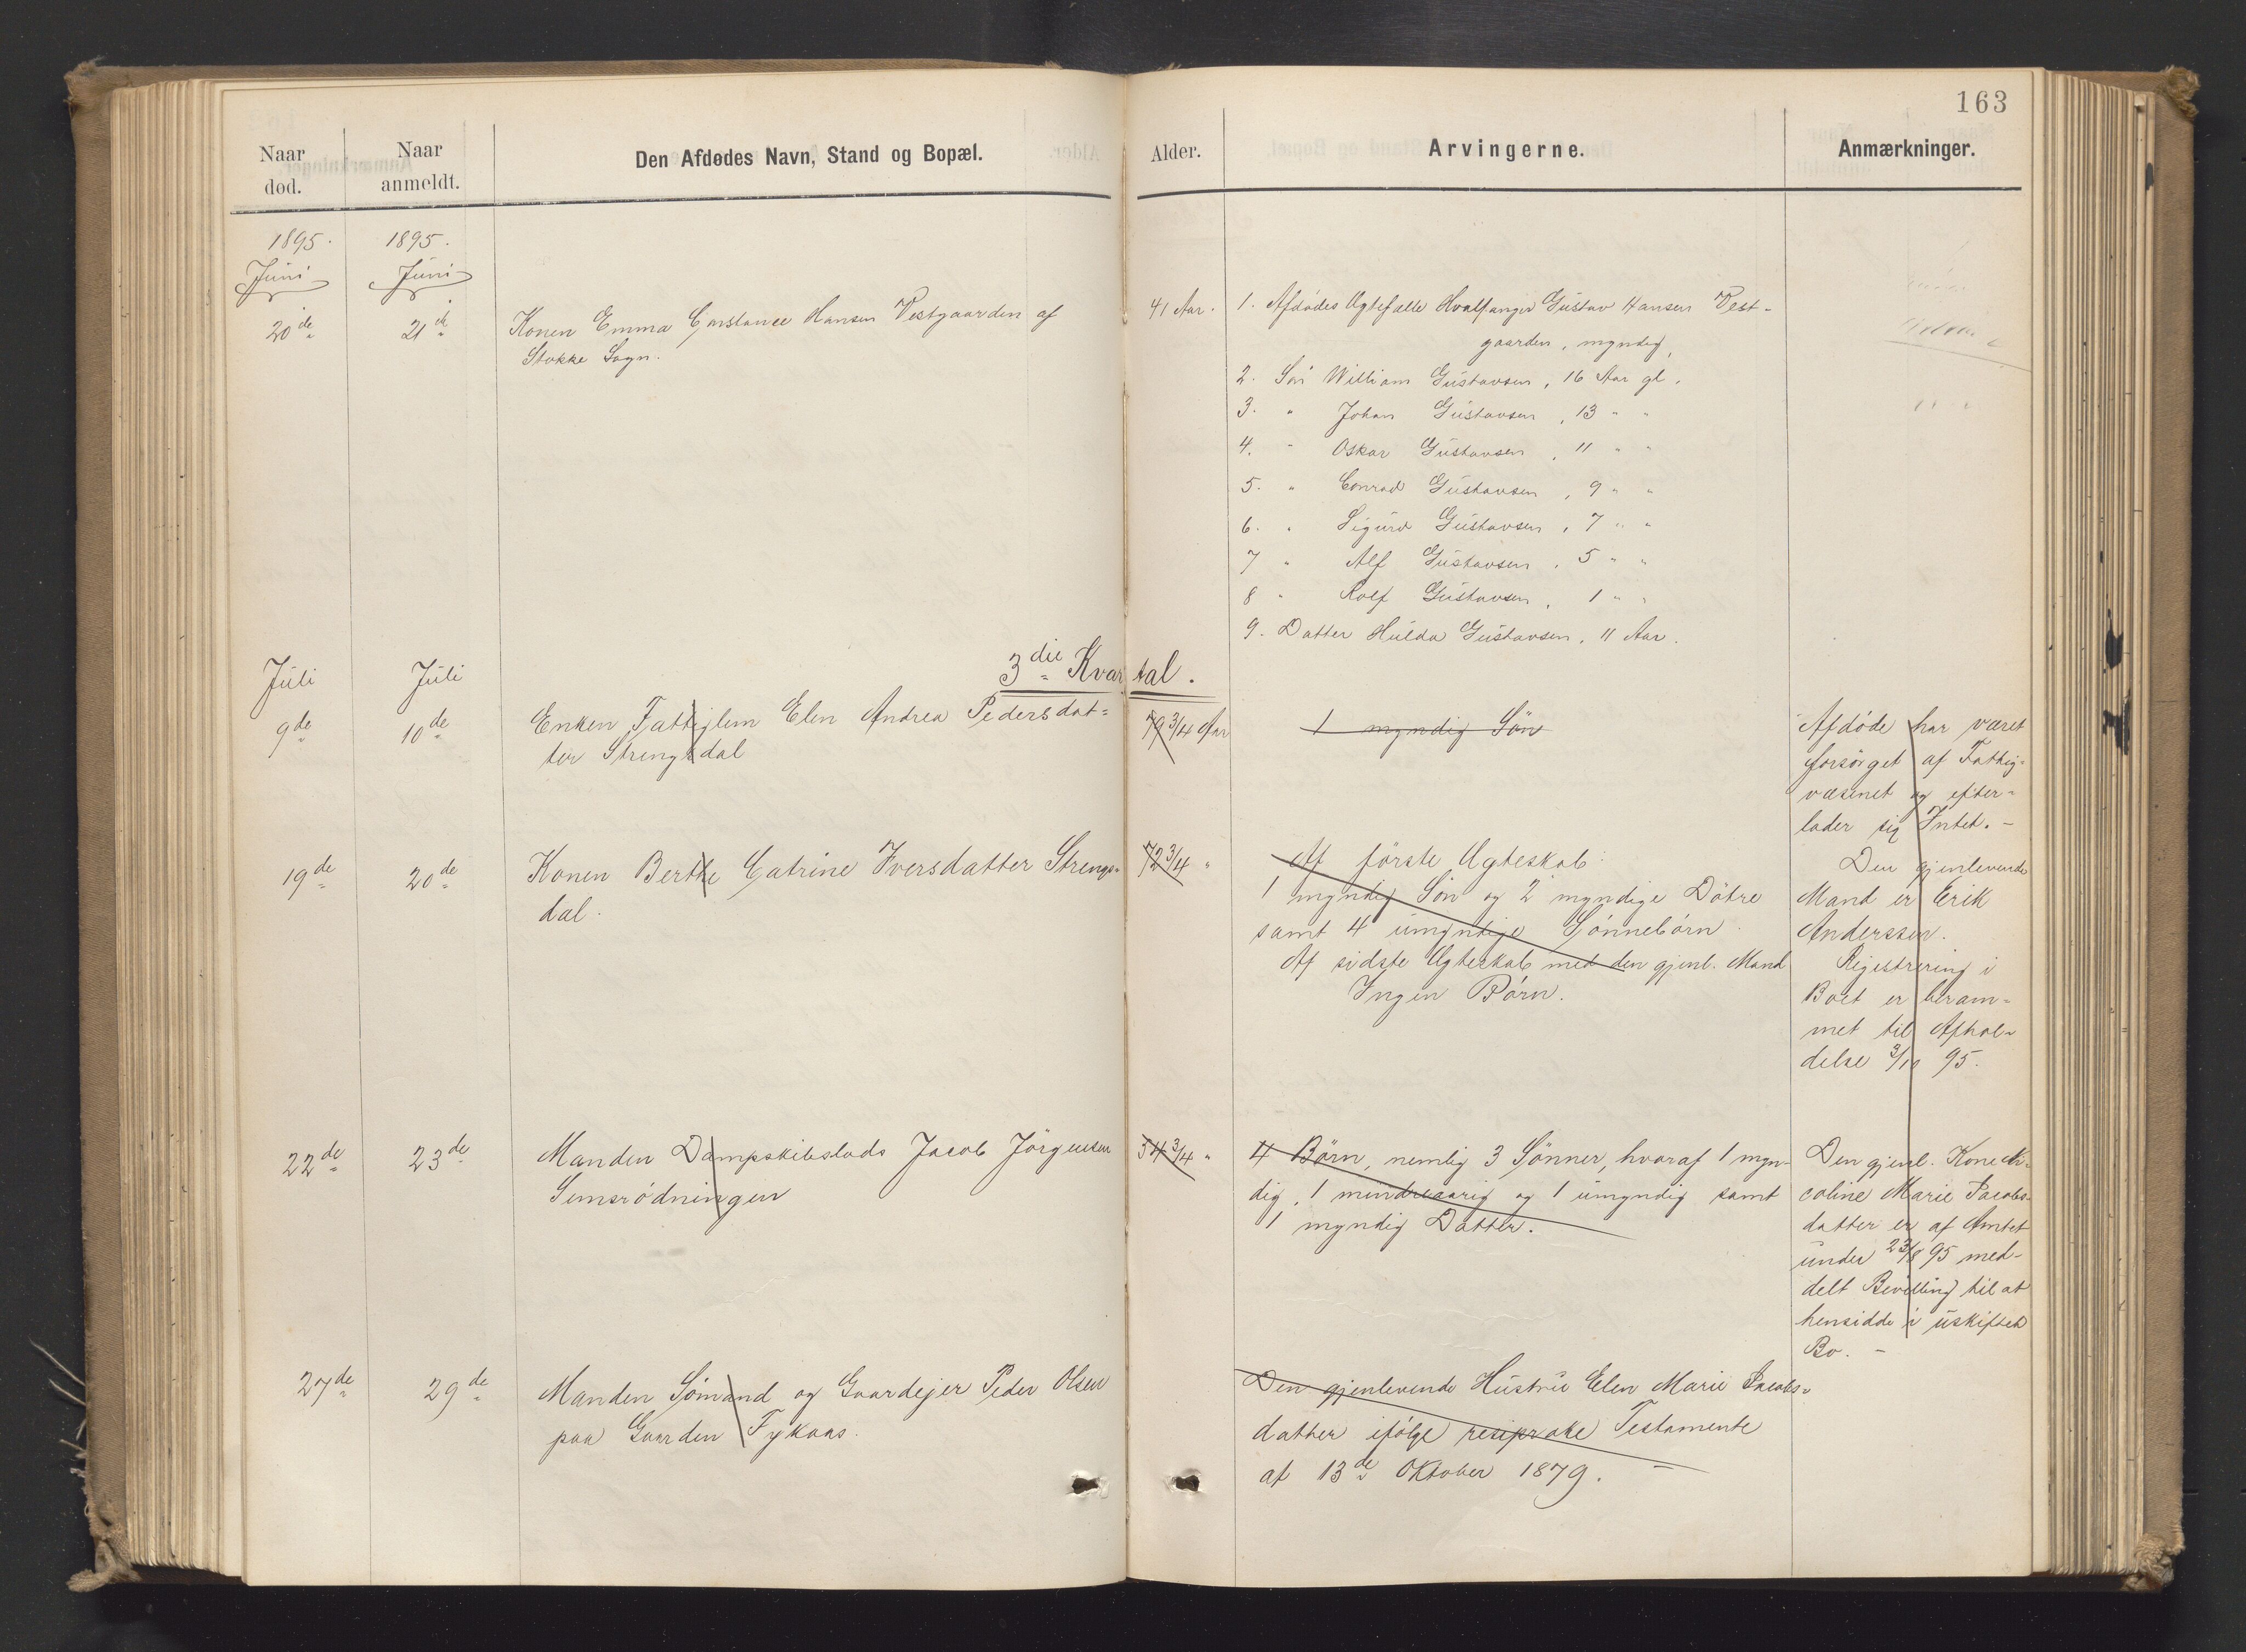 163
Naar død.
Naar anmeldt.
Den Afdødes Navn, Stand og Bopæl.
Alder.
Arvingerne.
Anmærkninger.
1895.
1895.
Juni
Juni
20de
21de
Konen Emma Constance Hansen Vestgaarden af
Stokke Sogn.
41 Aar.
1. Afdødes Ægtefælle Hvalfanger Gustav Hansen Vest-
gaarden, myndig,
2. Søn William Gustavsen, 16 Aar gl.
3. " Johan Gustavsen, 13 " "
4. " Oskar Gustavsen, 11 " "
5. " Conrad Gustavsen, 9 " "
6. " Sigurd Gustavsen, 7 " "
7 " Alf Gustavsen, 5 " "
8 " Rolf Gustavsen, 1 " "
9. Datter Hulda Gustavsen, 11 Aar.
3die Kvartal.
Juli
Juli
9de
10de
Enken, Fattiglem Elen Andrea Pedersdat-
ter Strengsdal
79 3/4 Aar
1 myndig Søn
Afdøde har været
forsørget af Fattig-
væsenet og efter-
lader sig Intet. -
19de
20de
Konen Berthe Catrine Iversdatter Strengs-
dal.
72 3/4 "
Af første Ægteskab:
1 myndig Søn og 2 myndige Døtre
samt 4 umyndige Sønnebørn.
Af sidste Ægteskab med den gjenl. Mand
Ingen Børn.
Den gjenlevende
Mand er Erik
Anderssen.
Registrering i
Boet er beram-
met til Afhol-
delse 3/10 95.
22de
23de
Manden Dampskibslods Jacob Jørgensen
Semsrødningen
54 3/4 "
4 Børn, nemlig 3 Sønner, hvoraf 1 myn-
dig, 1 mindreaarig og 1 umyndig samt
1 myndig Datter.
Den gjenl. Kone Ni-
coline Marie Jacobs-
datter er af Amtet
under 23/8 95 med-
delt Bevilling til at
hensidde i uskiftet
Bo. -
27de
29de
Manden Sømand og Gaardejer Peder Olsen
paa Gaarden Fykaas.
Den gjenlevende Hustru Elen Marie Jacobs-
datter ifølge resiproke Testamente
af 13de Oktober 1879. -